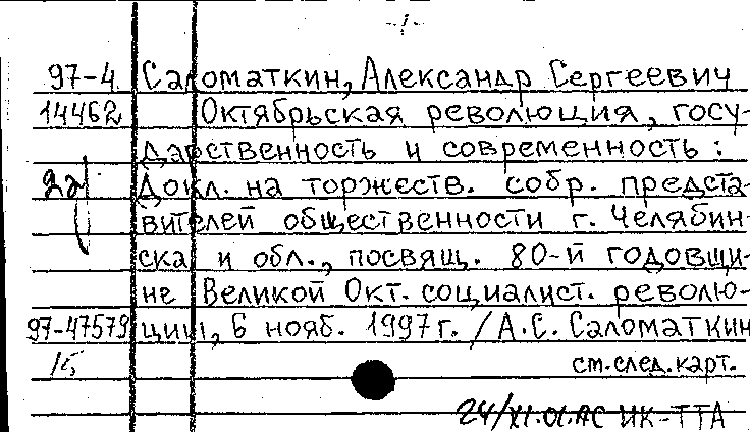 -1-
97-4 Саломаткин, Александр Сергеевич
14462 Октябрьская революция, госу-
дарственность и современность :
Докл. на торжеств. собр. предста-
вителей общественности г. Челябин-
ска и обл., посвящ. 80-й годовщи-
не Великой Окт. социалист. револю-
97-47579 ции, 6 нояб. 1997 г. / А.С. Саломаткин
см. след. карт.
24/XI.01.АС ИК-ТТА